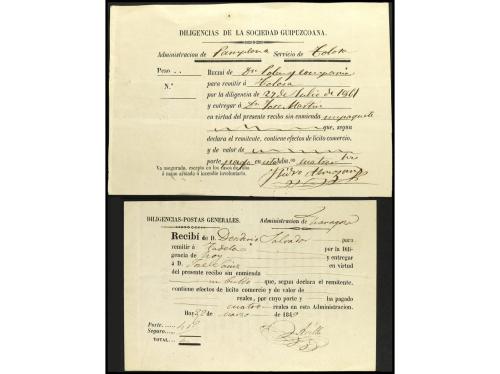 DILIGENCIAS DE LA SOCIEDAD GUIPUZCOANA.
Administracion de Pamplona Servicio de Tolosa
Peso .. Recibí de Dn. Polo y compania
N.º para remitir á Tolosa
por la diligencia de 29 de Julio de 1861
y entregar á Dn. Jose Martin
en virtud del presente recibo sin enmienda un paquete
que, segun
declara el remitente, contiene efectos de lícito comercio,
y de valor de
parte pago en rs
Va asegurado, escepto en los casos de robo
á mano armada é incendio involuntario.
DILIGENCIAS-POSTAS GENERALES. Administracion de Zaragoza
Recibí de D. Salvador para
remitir á Tudela por la Dili-
gencia de hoy y entregar
á D. en virtud
del presente recibo sin enmienda
un bulto que, segun declara el remitente,
contiene efectos de lícito comercio y de valor de
reales, por cuyo porte y ha pagado
cuatro reales en esta Administracion.
Hoy 22 de marzo de 184
Porte.
Seguro.
TOTAL